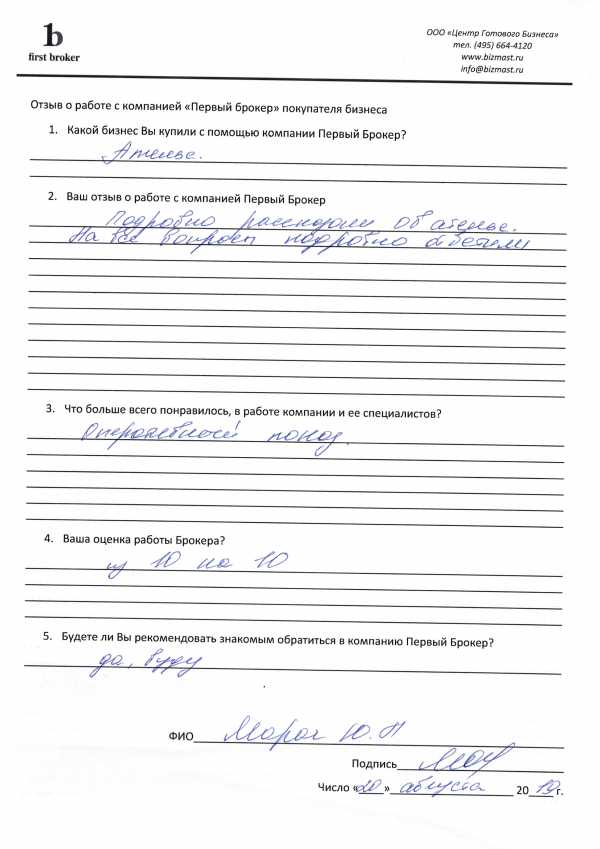 b
first broker
ООО «Центр Готового Бизнеса»
тел. (495) 664-4120
www.bizmast.ru
info@bizmast.ru
Отзыв о работе с компанией «Первый брокер» покупателя бизнеса
1. Какой бизнес Вы купили с помощью компании Первый Брокер?
Ателье.
2. Ваш отзыв о работе с компанией Первый Брокер
Подробно рассказали об ателье.
На все вопросы подробно ответили
3. Что больше всего понравилось, в работе компании и ее специалистов?
Оперативный показ.
4. Ваша оценка работы Брокера?
из 10 на 10
5. Будете ли Вы рекомендовать знакомым обратиться в компанию Первый Брокер?
да, буду
ФИО Мороз Ю.П
Подпись
Число «20» августа 2019 г.